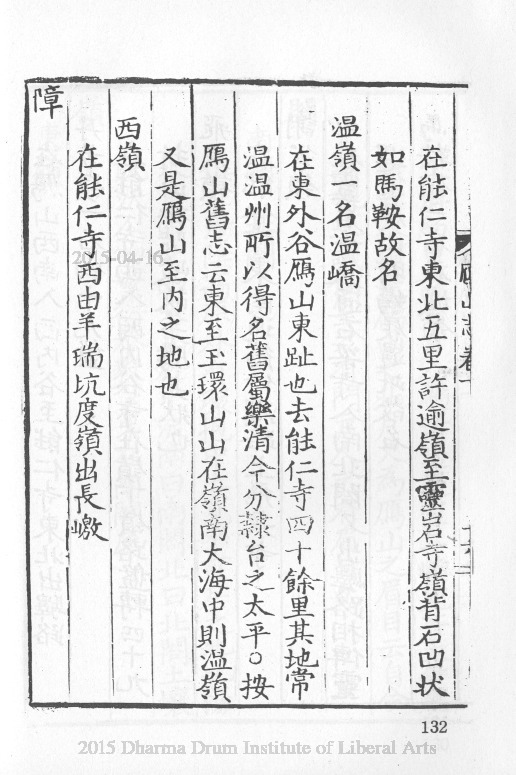 鴈山志卷一
在能仁寺東北五里許逾嶺至靈岩寺嶺背石凹状
如馬鞍故名
温嶺一名温嶠
在東外谷鴈山東趾也去能仁寺四十餘里其地常
温温州所以得名舊屬樂清今分隸台之太平○按
鴈山舊志云東至玉環山山在嶺南大海中則温嶺
又是鴈山至内之地也
西嶺
在能仁寺西由羊瑞坑度嶺出長嶽
障
132
2015-04-16
2015 Dharma Drum Institute of Liberal Arts